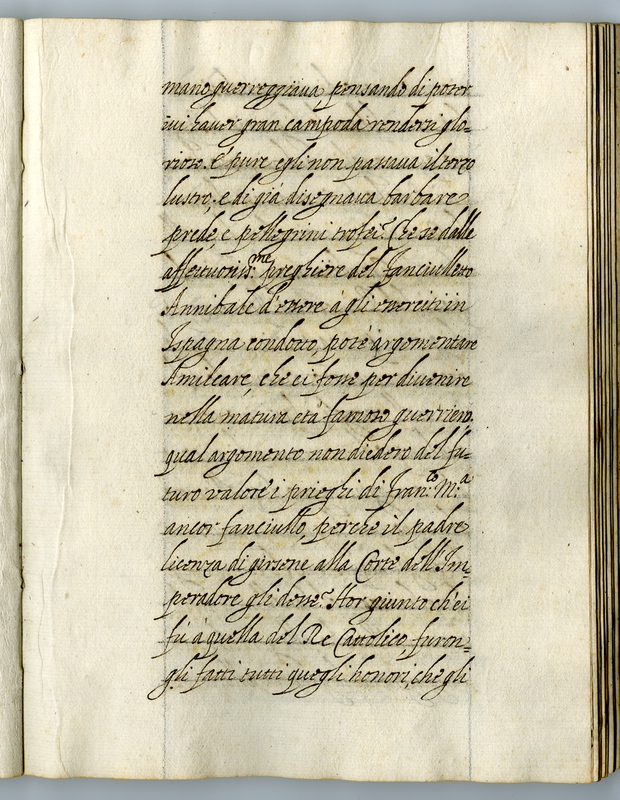 mano guerreggiava, pensando di poter
ivi haver gran campo da rendersi glo=
rioso. e pure egli non passava il terzo
lustro, e di già disegnava barbare
prede, e pellegrini trofei? Che se dalle
affettuosiss.me preghiere del fanciulletto
Annibale d'essere à gli eserciti in
Ispagna condotto, potè argomentare
Amilcare, che ei fosse per divenire
nella matura età famoso guerriero.
qual argomento non diedero del fu=
turo valore i prieghi di Fran.co M.a
ancor fanciullo, perche il padre
licenza di girsene alla Corte dell'Im=
peradore gli desse? Hor giunto ch'ei
fù à quella del Re Cattolico, furon=
gli fatti tutti quegli honori, che gli